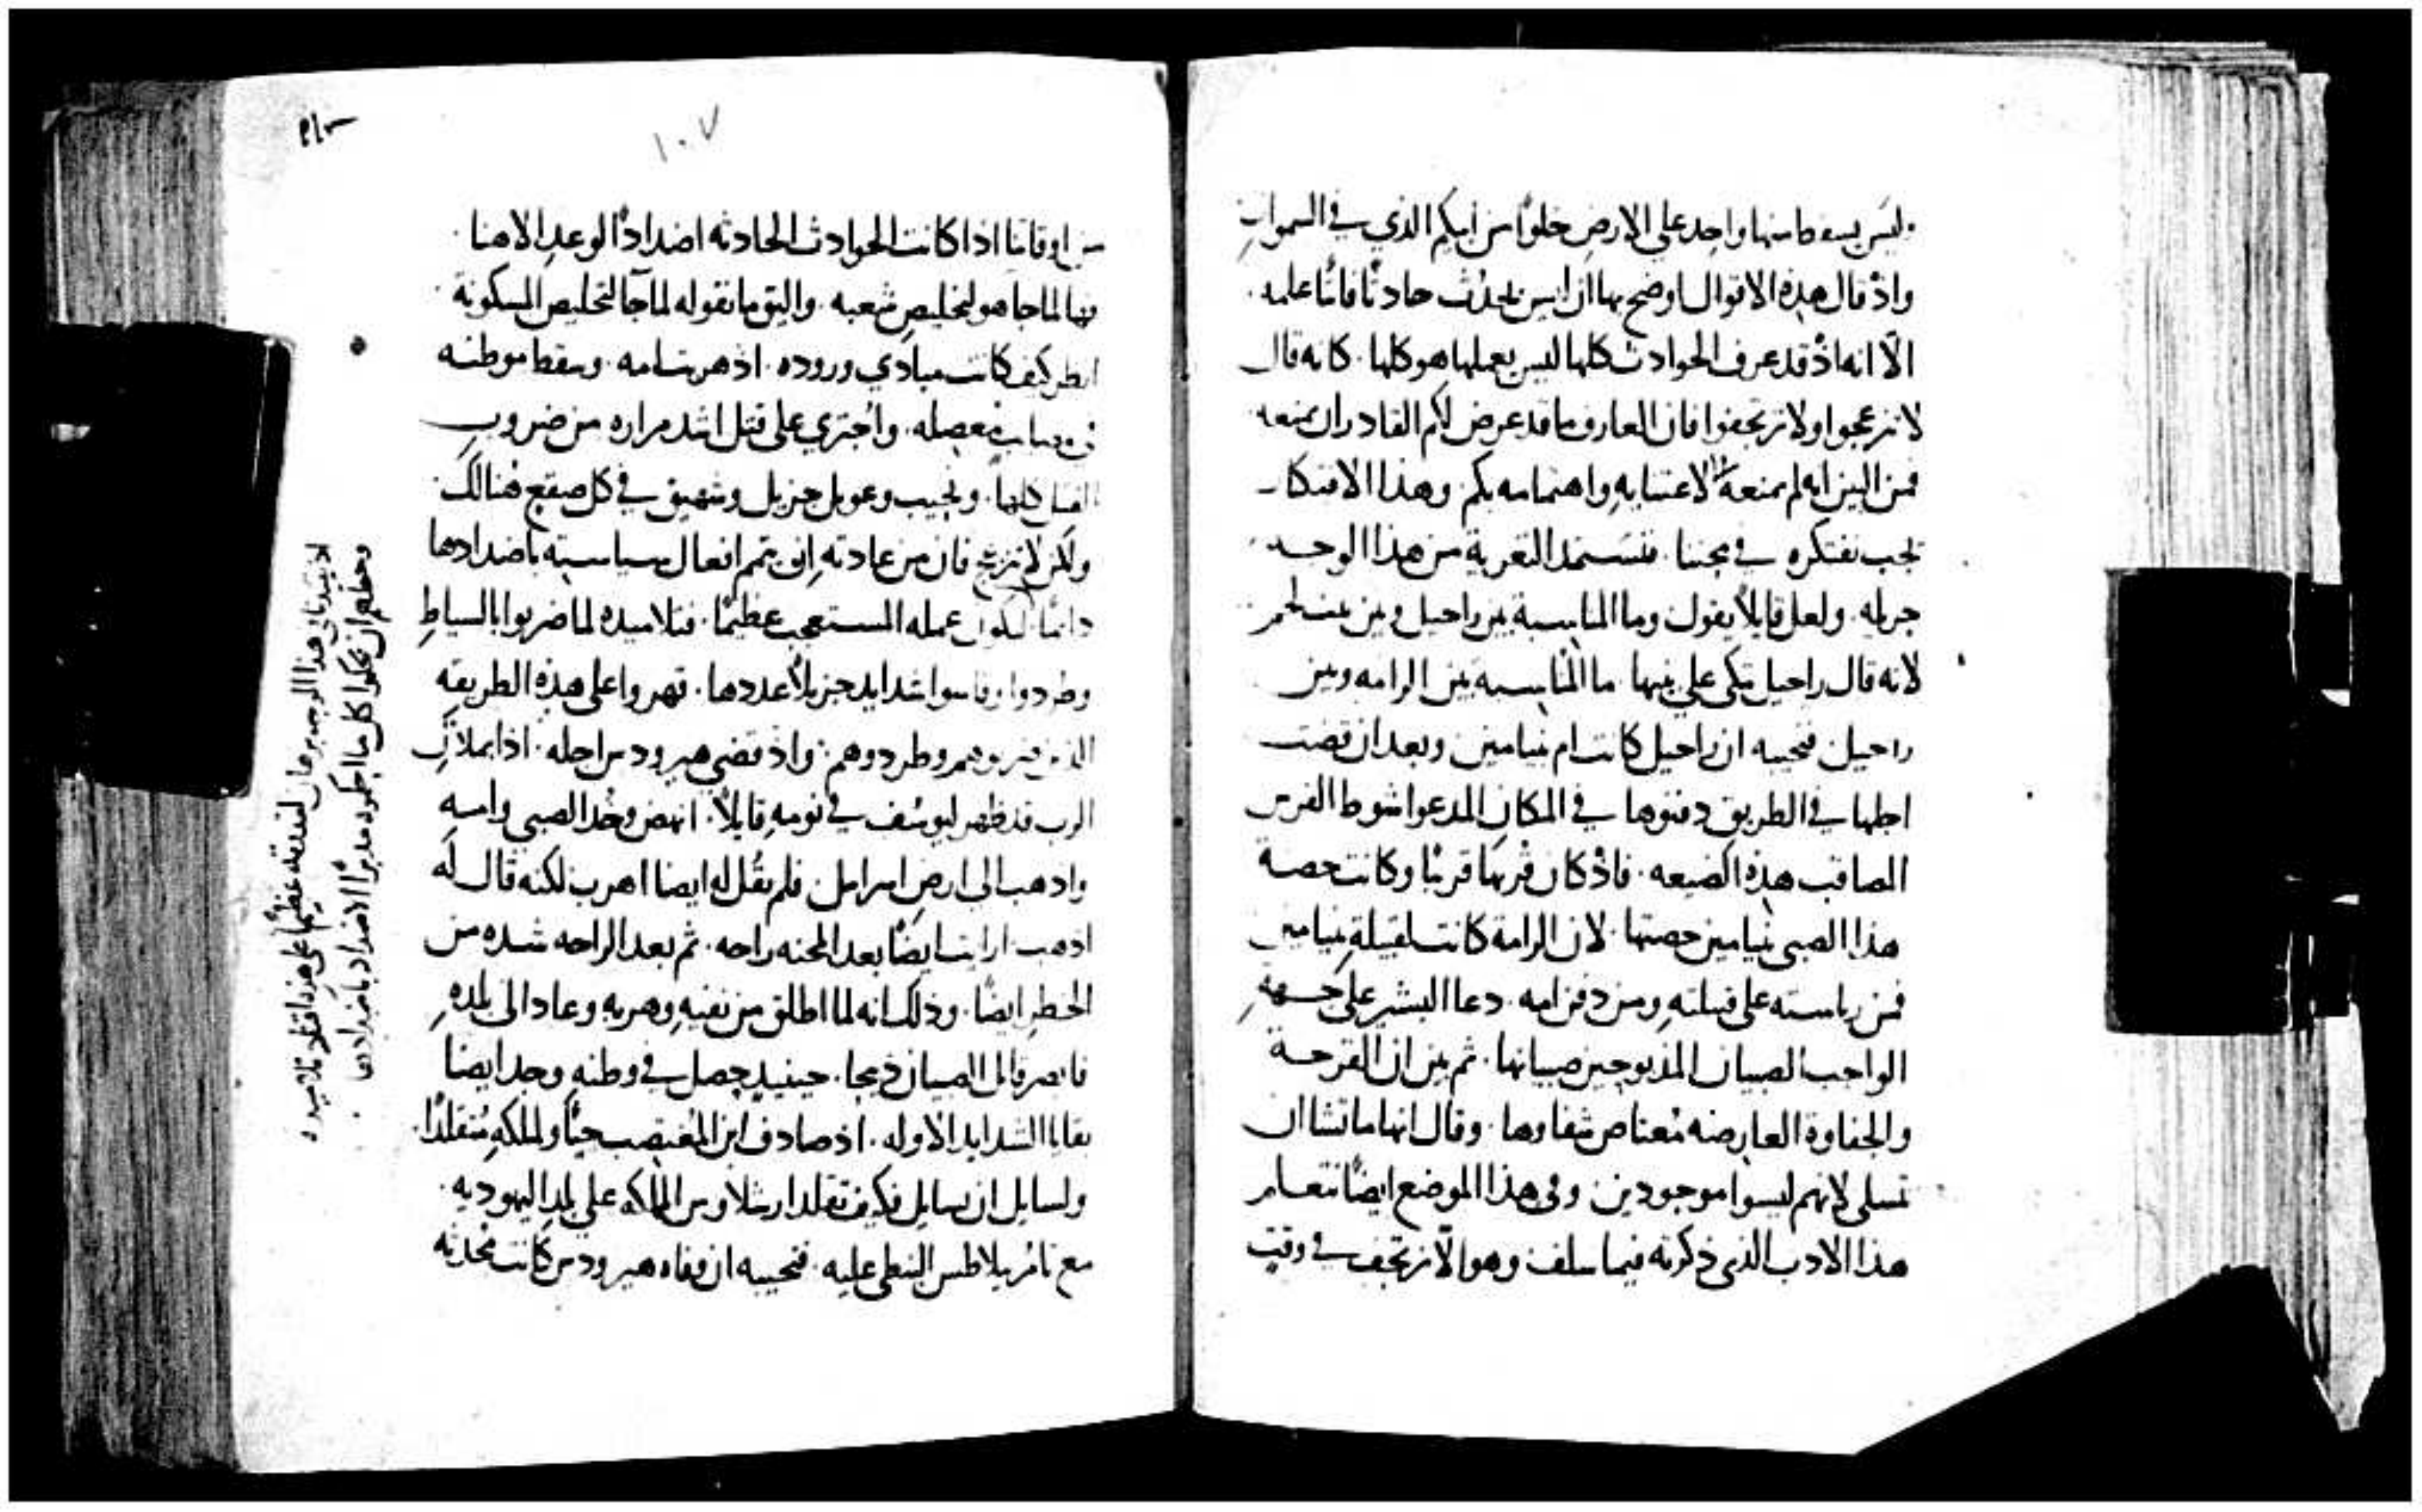 وليس يسقط منها واحد على الارض خلوًا من ابيكم الذي في السموات
واذ قال هذه الاقوال اوضح بها ان ليس يحدث حادثًا فائتًا علمه
الّا انه اذ قد عرف الحوادث كلها ليس يعملها هو كلها. كانه قال
لا تنزعجوا ولا ترتجفوا فان العارف ما قد عرض لكم القادر ان يمنعه
فمن البين انه لم يمنعه لاعتنايه واهتمامه بكم. وهذا الافتكار
يجب نفتكره في محننا. فنستمد التعزية من هذا الوجه
جزيله. ولعل قايلًا يقول وما المناسبة بين راحيل وبين بيت لحم
لانه قال راحيل تبكي على بنيها. ما المناسبه بين الرامه وبين
راحيل. فنجيبه ان راحيل كانت ام بنيامين وبعد ان قضت
اجلها في الطريق دفنوها في المكان المدعوا شوط الفرس
الصاقب هذه الضيعه. فاذ كان قبرها قريبًا وكانت حصة
هذا الصبي بنيامين حصتها. لان الرامة كانت لقبيلة بنيامين
فمن رياسته على قبيلته ومن دفن امه. دعا البشير على جهة
الواجب الصبيان المذبوحين صبيانها. ثم بين ان القرحة
والجفاوة العارضه مُعتاص شفاوها. وقال انها ما تشا ان
تسلى لانهم ليسوا موجودين. وفي هذا الموضع ايضًا نتعلم
هذا الادب الذي ذكرته فيما سلف وهو الّا نرتجف في وقت
١٠٧
من اوقاتنا اذا كانت الحوادث الحادثه اضدادًا لوعد الاهنا
لما جا هو لتخليص شعبه. واليق ما نقوله لما جآ لتخليص المسكونة
انظر كيف كانت مبادي وروده. اذ هربت امه. وسقط موطنه
في مصايب معضله. واجتري على قتل اشد مراره من ضروب
القتل كلها. ونحيب وعويل جزيل وشهيق في كل صقع هنالك
ولكن لا تنزعج فان من عادته ان يتمم افعال سياسته باضدادها
دايمًا ليكون عمله المستعجب عظيمًا. فتلاميذه لما ضربوا بالسياط
وطردوا. وقاسوا شدايد جزيلًا عددها. قهروا على هذه الطريقه
الذين ضربوهم وطردوهم. واذ قضى هيرودس اجله. اذا بملاك
الرب قد ظهر ليوسف في نومه قايلًا. انهض وخذ الصبي وامه
واذهب الى ارض اسرايل. فلم يقل له ايضا اهرب لكنه قال له
اذهب. ارايت ايضًا بعد المحنه راحه. ثم بعد الراحه شده من
الخطر ايضًا. وذلك انه لما اطلق من نفيه وهربه وعاد الى بلده
فابصر قاتل الصبيان ذبيحا. حينيذٍ حصل في وطنه وجد ايضا
بقايا الشدايد الاوله. اذ صادف ابن المغتصب حيًا وللملكه متقلدًا.
ولسايل ان يسايل فكيف تقلد ارشلاوس الملكه على بلد اليهوديه.
مع تامر بيلاطس النبطي عليه. فنجيبه ان وفاه هيرودس كانت محدثه
وجعلهم ان يحكوا كل ما اجراه مدبرًا الاضداد باضدادها
تلاميذه